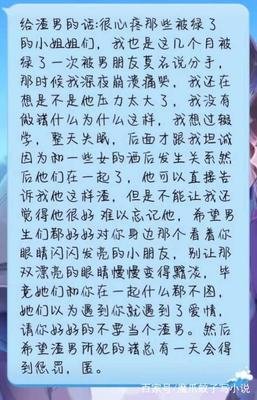 给渣男的话:很心疼那些被绿了
的小姐姐们，我也是这几个月被
绿了一次被男朋友莫名说分手，
那时候我深夜崩溃痛哭，我还在
想是不是他压力太大了，我没有
做错什么为什么这样，我想过辍
学，整天失眠，后面才跟我坦诚
因为和一些女的酒后发生关系然
后他们在一起了，他可以直接告
诉我他这样渣，但是不能让我还
觉得他很好 难以忘记他，希望男
生们都好好对你身边那个看着你
眼睛闪闪发亮的小朋友，别让那
双漂亮的眼睛慢慢变得黯淡，毕
竟她们和你在一起什么都不图，
她们以为遇到你就遇到了爱情，
请你好好的不要当个渣男。然后
希望渣男所犯的错总有一天会得
到惩罚，匿。
百家号/魔爪蚊子写小说